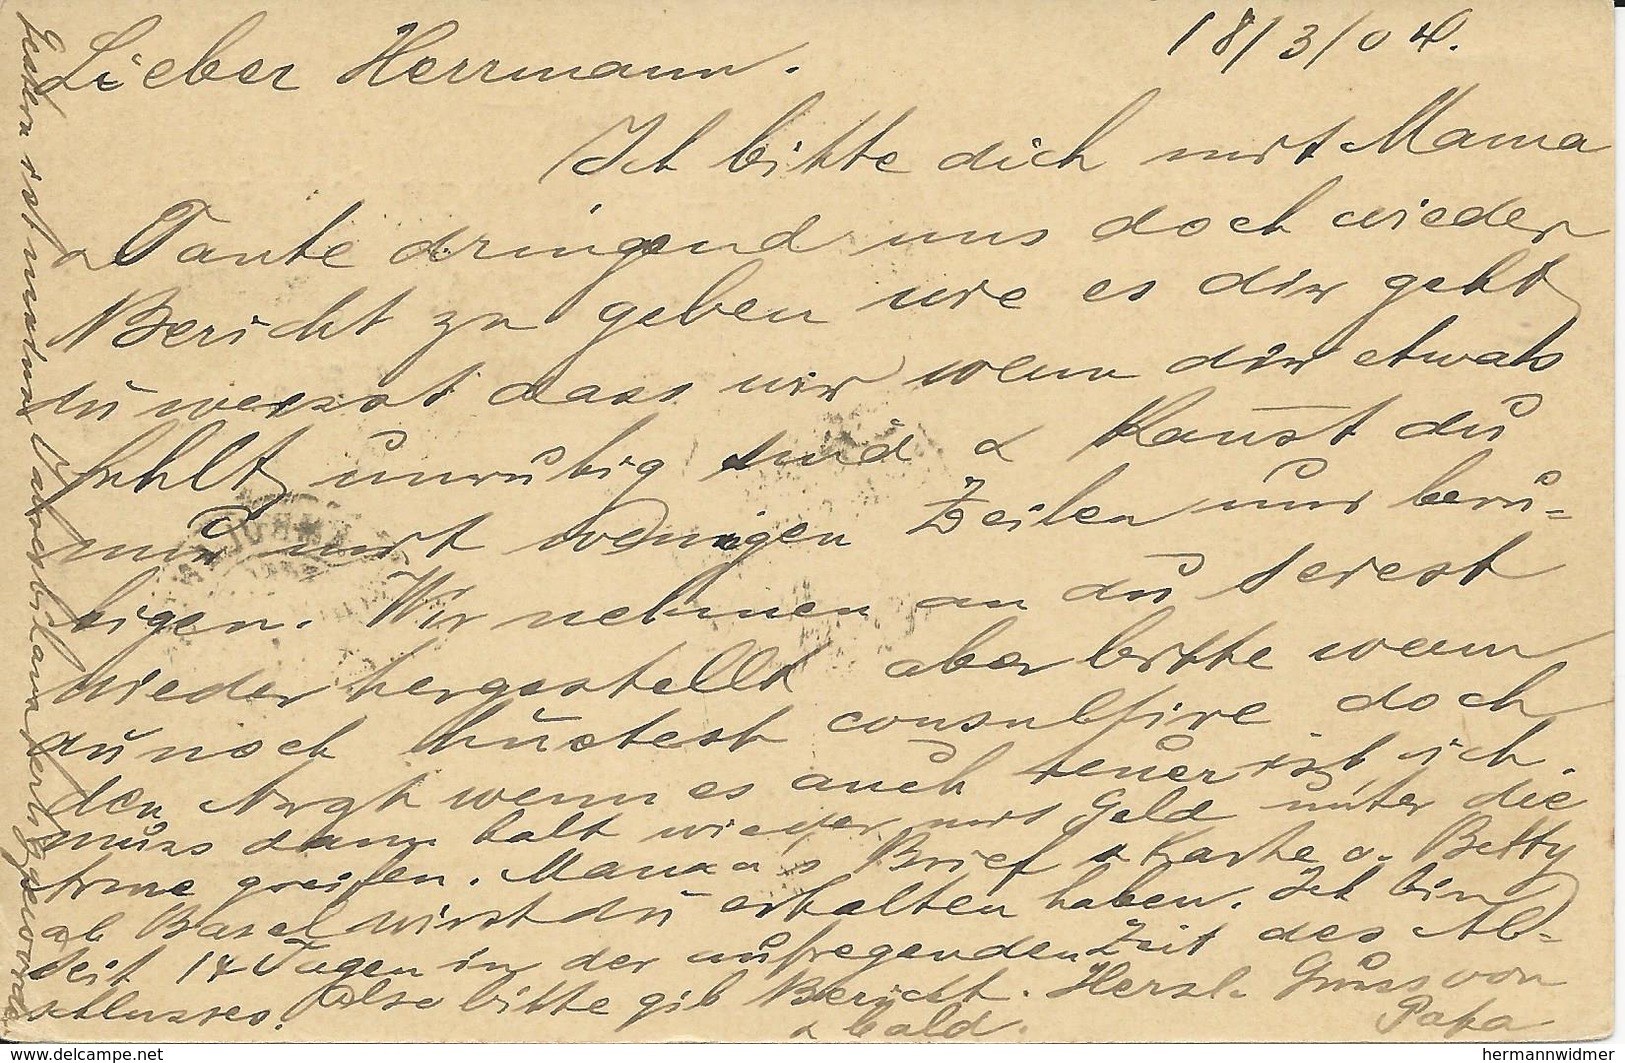 18/3/04.
Lieber Herrmann.
Ich bitte dich mit Mama
& Tante dringend uns doch wieder
Bericht zu geben wie es dir geht,
du weisst dass wir wenn dir etwas
fehlt, unruhig sind & kannst du
mit wenigen Zeilen uns beru-
higen. Wir nehmen an du seiest
wieder hergestellt aber bitte wenn
du noch hustest consultire doch
den Arzt wenn es auch teuer ist ich
muss dann halt wieder mit Geld unter die
Arme greifen. Mama's Brief & Karte v. Betty
ab Basel wirst du erhalten haben. Ich bin
seit 14 Tagen in der aufregenden Zeit des Ab-
schlusses. Also bitte gib Bericht. Herzl. Gruss von
& bald. Papa
Gestern ist mein fertig geworden.
hermannwidmer
www.delcampe.net